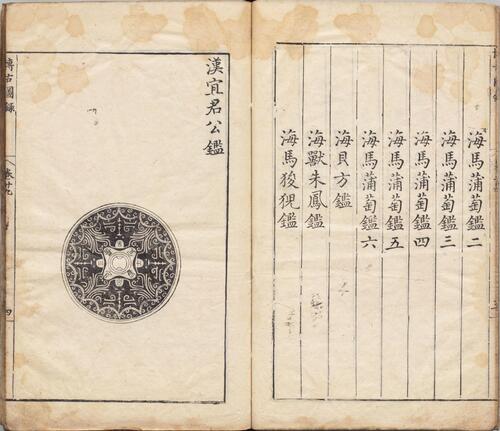 海馬蒲萄鑑二
海馬蒲萄鑑三
海馬蒲萄鑑四
海馬蒲萄鑑五
海馬蒲萄鑑六
海貝方鑑
海獸朱鳳鑑
海馬狻猊鑑
漢宜君公鑑
博古圖錄
卷廿九
四